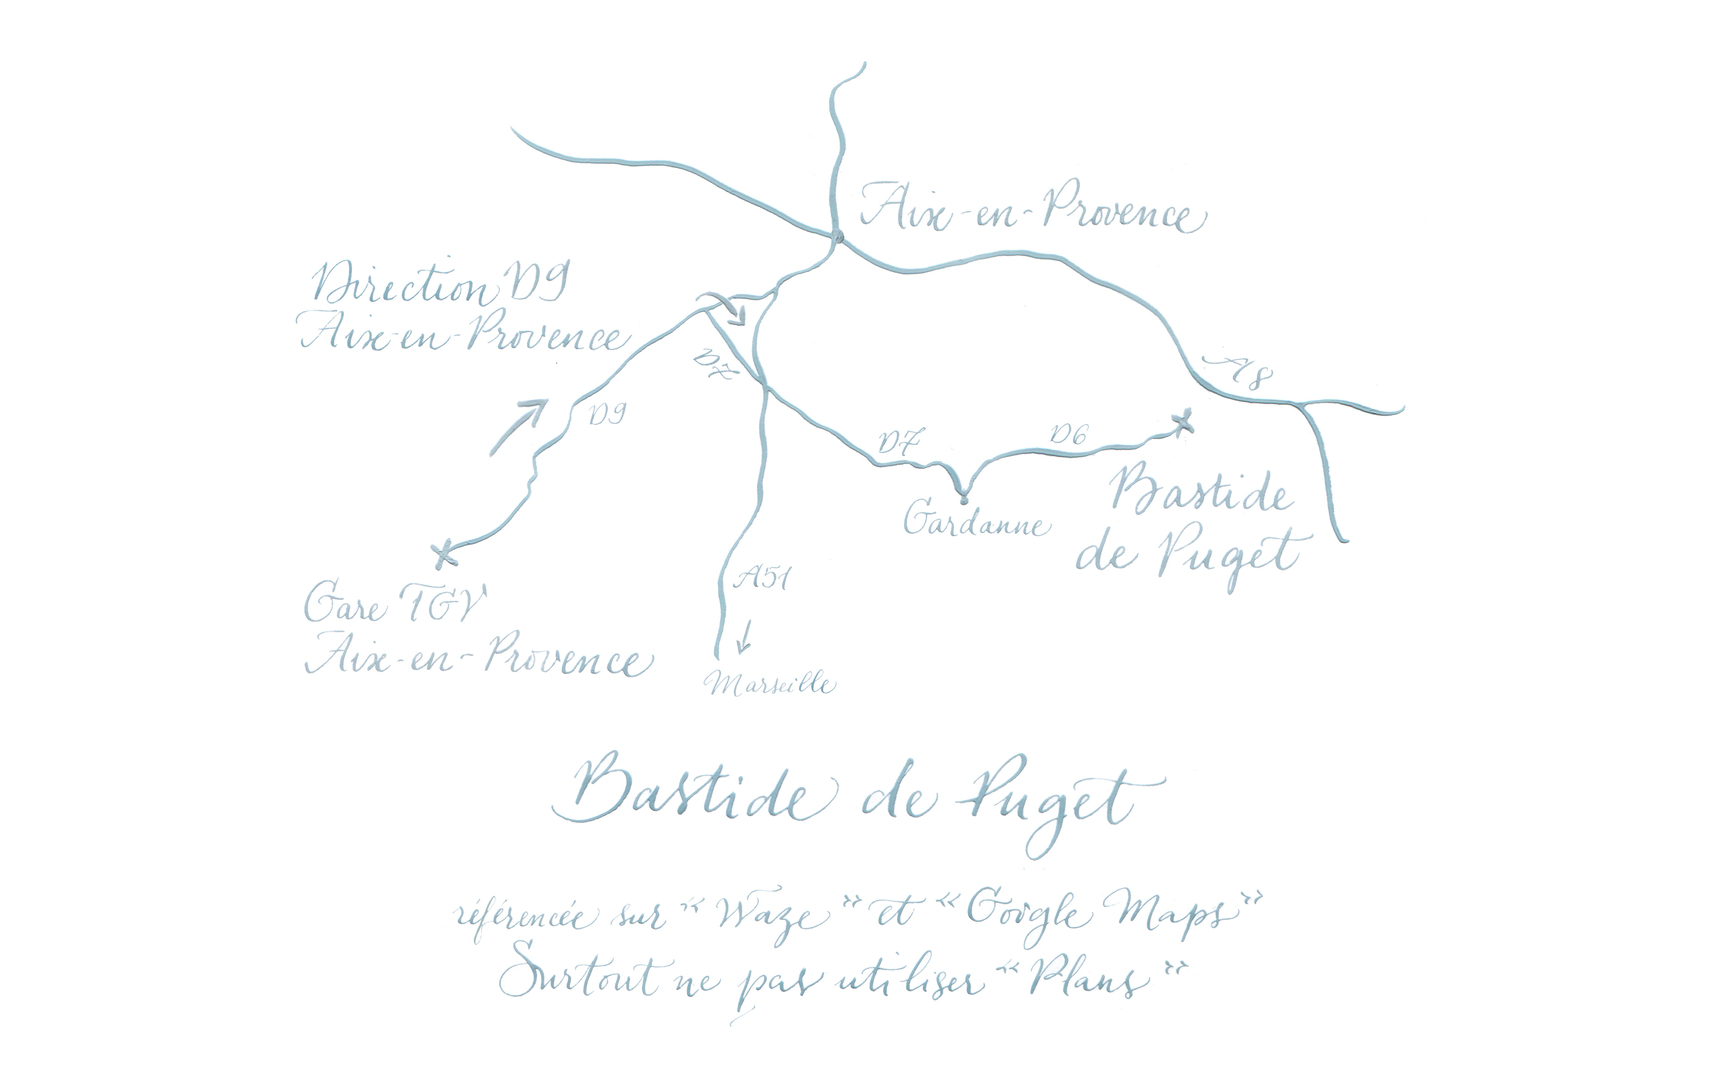 Aix-en-Provence
Direction D9
Aix-en-Provence
D7
A8
D9
D7
D6
Bastide
de Puget
Gardanne
A51
Gare TGV
Aix-en-Provence
Marseille
Bastide de Puget
référencée sur “Waze” et «Google Maps»
Surtout ne pas utiliser «Plans»